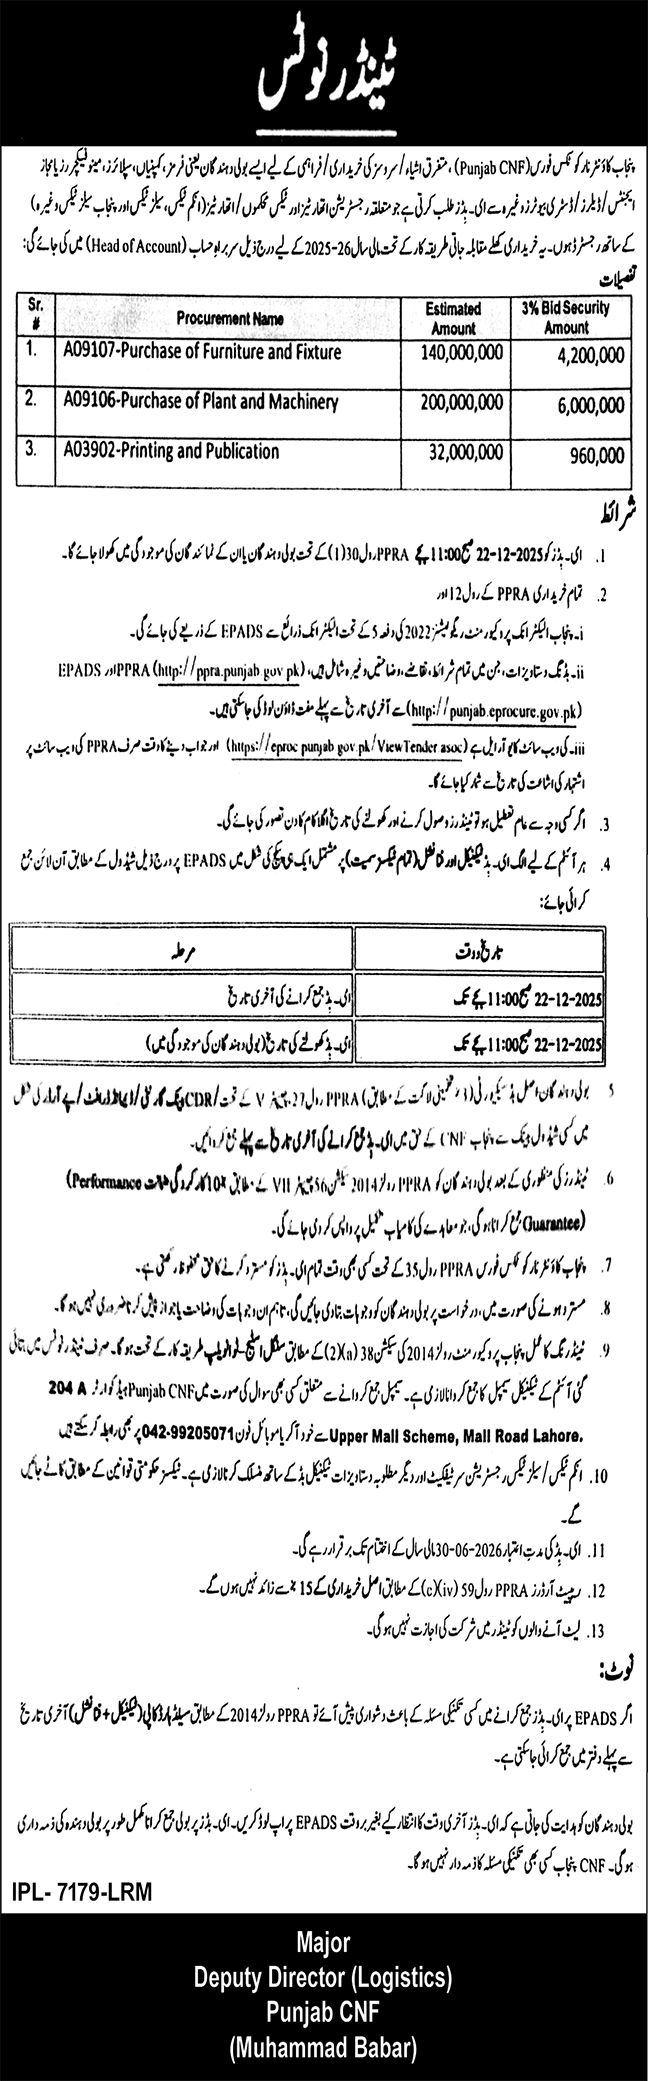 ٹینڈر نوٹس
پنجاب کاؤنٹر نارکوٹکس فورس (Punjab CNF)، متفرق اشیاء/سروسز کی خریداری/فراہمی کے لیے ایسے بولی دہندگان یعنی فرمز، کمپنیاں، سپلائرز، مینوفیکچررز یا مجاز
ایجنٹس/ڈیلرز/ڈسٹری بیوٹرز وغیرہ سے ای۔بڈز طلب کرتی ہے جو متعلقہ رجسٹریشن اتھارٹیز اور ٹیکس محکموں/اتھارٹیز (انکم ٹیکس، سیلز ٹیکس اور پنجاب سیلز ٹیکس وغیرہ)
کے ساتھ رجسٹرڈ ہوں۔ یہ خریداری کھلے مقابلہ جاتی طریقہ کار کے تحت مالی سال 26-2025 کے لیے درج ذیل سربراہ حساب (Head of Account) میں کی جائے گی:
تفصیلات
Sr. # Procurement Name Estimated Amount 3% Bid Security Amount
1. A09107-Purchase of Furniture and Fixture 140,000,000 4,200,000
2. A09106-Purchase of Plant and Machinery 200,000,000 6,000,000
3. A03902-Printing and Publication 32,000,000 960,000
شرائط
1. ای۔بڈز کو 22-12-2025 صبح 11:00 بجے PPRA رول 30(1) کے تحت بولی دہندگان یا ان کے نمائندگان کی موجودگی میں کھولا جائے گا۔
2. تمام خریداری PPRA کے رول 12 اور
i۔ پنجاب الیکٹرانک پروکیورمنٹ ریگولیشنز 2022 کی دفعہ 5 کے تحت الیکٹرانک ذرائع سے EPADS کے ذریعے کی جائے گی۔
ii۔ بڈنگ دستاویزات، جن میں تمام شرائط، تقاضے، وضاحتیں وغیرہ شامل ہیں، (http://ppra.punjab.gov.pk) PPRA اور EPADS
(http://punjab.eprocure.gov.pk) سے آخری تاریخ سے پہلے مفت ڈاؤن لوڈ کی جاسکتی ہیں۔
iii۔ کی ویب سائٹ کا یو آر ایل ہے (https://eproc punjab.gov.pk/ViewTender asoc) اور جواب دینے کا وقت صرف PPRA کی ویب سائٹ پر
اشتہار کی اشاعت کی تاریخ سے شمار کیا جائے گا۔
3. اگر کسی وجہ سے عام تعطیل ہو تو ٹینڈرز وصول کرنے اور کھولنے کی تاریخ اگلا کام کا دن تصور کی جائے گی۔
4. ہر آئٹم کے لیے الگ ای۔بڈ ٹیکنیکل اور فنانشل (تمام ٹیکسز سمیت) پر مشتمل ایک ہی پیکج کی شکل میں EPADS پر درج ذیل شیڈول کے مطابق آن لائن جمع
کرائی جائے:
تاریخ و وقت مرحلہ
22-12-2025 صبح 11:00 بجے تک ای۔بڈ جمع کرانے کی آخری تاریخ
22-12-2025 صبح 11:00 بجے تک ای۔بڈ کھولنے کی تاریخ (بولی دہندگان کی موجودگی میں)
5 بولی دہندگان اصل بڈ سیکیورٹی (3% تخمینی لاگت کے مطابق) PPRA رول 27، چیپٹر V کے تحت CDR/بینک گارنٹی/ڈیمانڈ ڈرافٹ/پے آرڈر کی شکل
میں کسی شیڈول بینک سے پنجاب CNF کے حق میں ای۔بڈ جمع کرانے کی آخری تاریخ سے پہلے جمع کروائیں۔
6. ٹینڈرز کی منظوری کے بعد بولی دہندگان کو PPRA رولز 2014 سیکشن 56 چیپٹر VII کے مطابق 10% کارکردگی ضمانت (Performance
Guarantee) جمع کرانا ہوگی، جو معاہدے کی کامیاب تکمیل پر واپس کر دی جائے گی۔
7. پنجاب کاؤنٹر نارکوٹکس فورس PPRA رول 35 کے تحت کسی بھی وقت تمام ای۔بڈز کو مسترد کرنے کا حق محفوظ رکھتی ہے۔
8. مسترد ہونے کی صورت میں، درخواست پر بولی دہندگان کو وجوہات بتا دی جائیں گی، تاہم ان وجوہات کی وضاحت یا جواز پیش کرنا ضروری نہیں ہوگا۔
9. ٹینڈرنگ کا عمل پنجاب پروکیورمنٹ رولز 2014 کی سیکشن 38 (2)(a) کے مطابق سنگل اسٹیج-ٹو انویلپ طریقہ کار کے تحت ہوگا۔ صرف ٹینڈر نوٹس میں بتائی
گئی آئٹم کے ٹیکنیکل سیمپل کا جمع کروانا لازمی ہے۔ سیمپل جمع کروانے سے متعلق کسی بھی سوال کی صورت میں Punjab CNF ہیڈکوارٹر 204 A
Upper Mall Scheme, Mall Road Lahore. سے خود آکر یا موبائل فون 042-99205071 پر بھی رابطہ کرسکتے ہیں
10. انکم ٹیکس/سیلز ٹیکس رجسٹریشن سرٹیفکیٹ اور دیگر مطلوبہ دستاویزات ٹیکنیکل بڈ کے ساتھ منسلک کرنا لازمی ہے۔ ٹیکسز حکومتی قوانین کے مطابق کاٹے جائیں
گے۔
11. ای۔بڈ کی مدت اعتبار 30-06-2026 مالی سال کے اختتام تک برقرار رہے گی۔
12. رپیٹ آرڈرز PPRA رول 59 (c)(iv) کے مطابق اصل خریداری کے 15% سے زائد نہیں ہوں گے۔
13. لیٹ آنے والوں کو ٹینڈر میں شرکت کی اجازت نہیں ہوگی۔
نوٹ:
اگر EPADS پر ای۔بڈز جمع کرانے میں کسی تکنیکی مسئلہ کے باعث دشواری پیش آئے تو PPRA رولز 2014 کے مطابق سیلڈ ہارڈ کاپی (ٹیکنیکل + فنانشل) آخری تاریخ
سے پہلے دفتر میں جمع کرائی جاسکتی ہے۔
بولی دہندگان کو ہدایت کی جاتی ہے کہ ای۔بڈز آخری وقت کا انتظار کے بغیر بروقت EPADS پر اپ لوڈ کریں۔ ای۔بڈز پر بولی جمع کرانا مکمل طور پر بولی دہندہ کی ذمہ داری
ہوگی۔ CNF پنجاب کسی بھی تکنیکی مسئلہ کا ذمہ دار نہیں ہوگا۔
IPL- 7179-LRM
Major
Deputy Director (Logistics)
Punjab CNF
(Muhammad Babar)